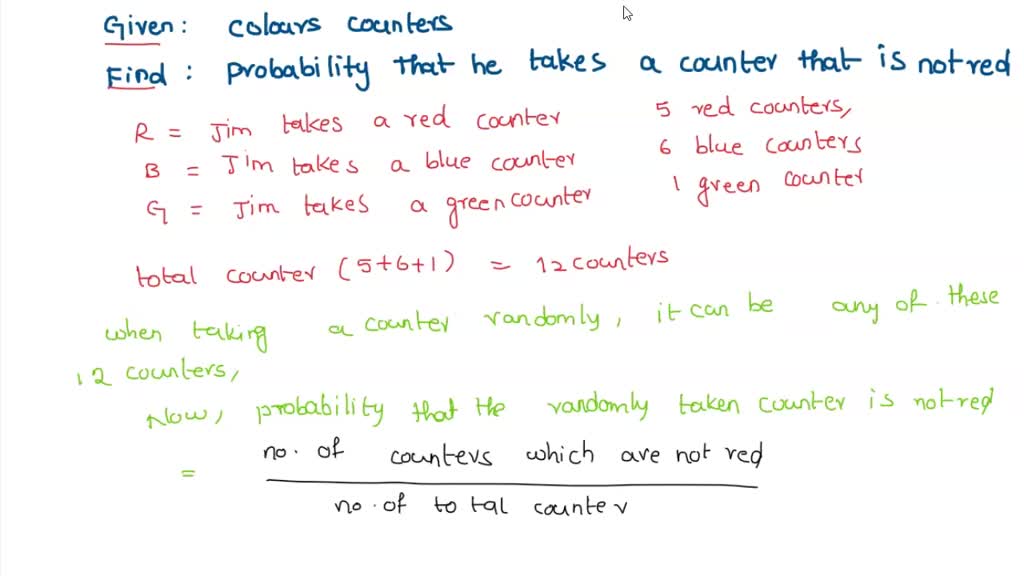 Given: colours counters
Find: probability that he takes a counter that is not red
R = Jim takes a red counter
B = Jim takes a blue counter
G = Jim takes a green counter
5 red counters,
6 blue counters
1 green counter
total counter (5+6+1) = 12 counters
when taking a counter randomly, it can be any of these
12 counters,
Now, probability that the randomly taken counter is not red
= no. of counters which are not red
no. of total counter